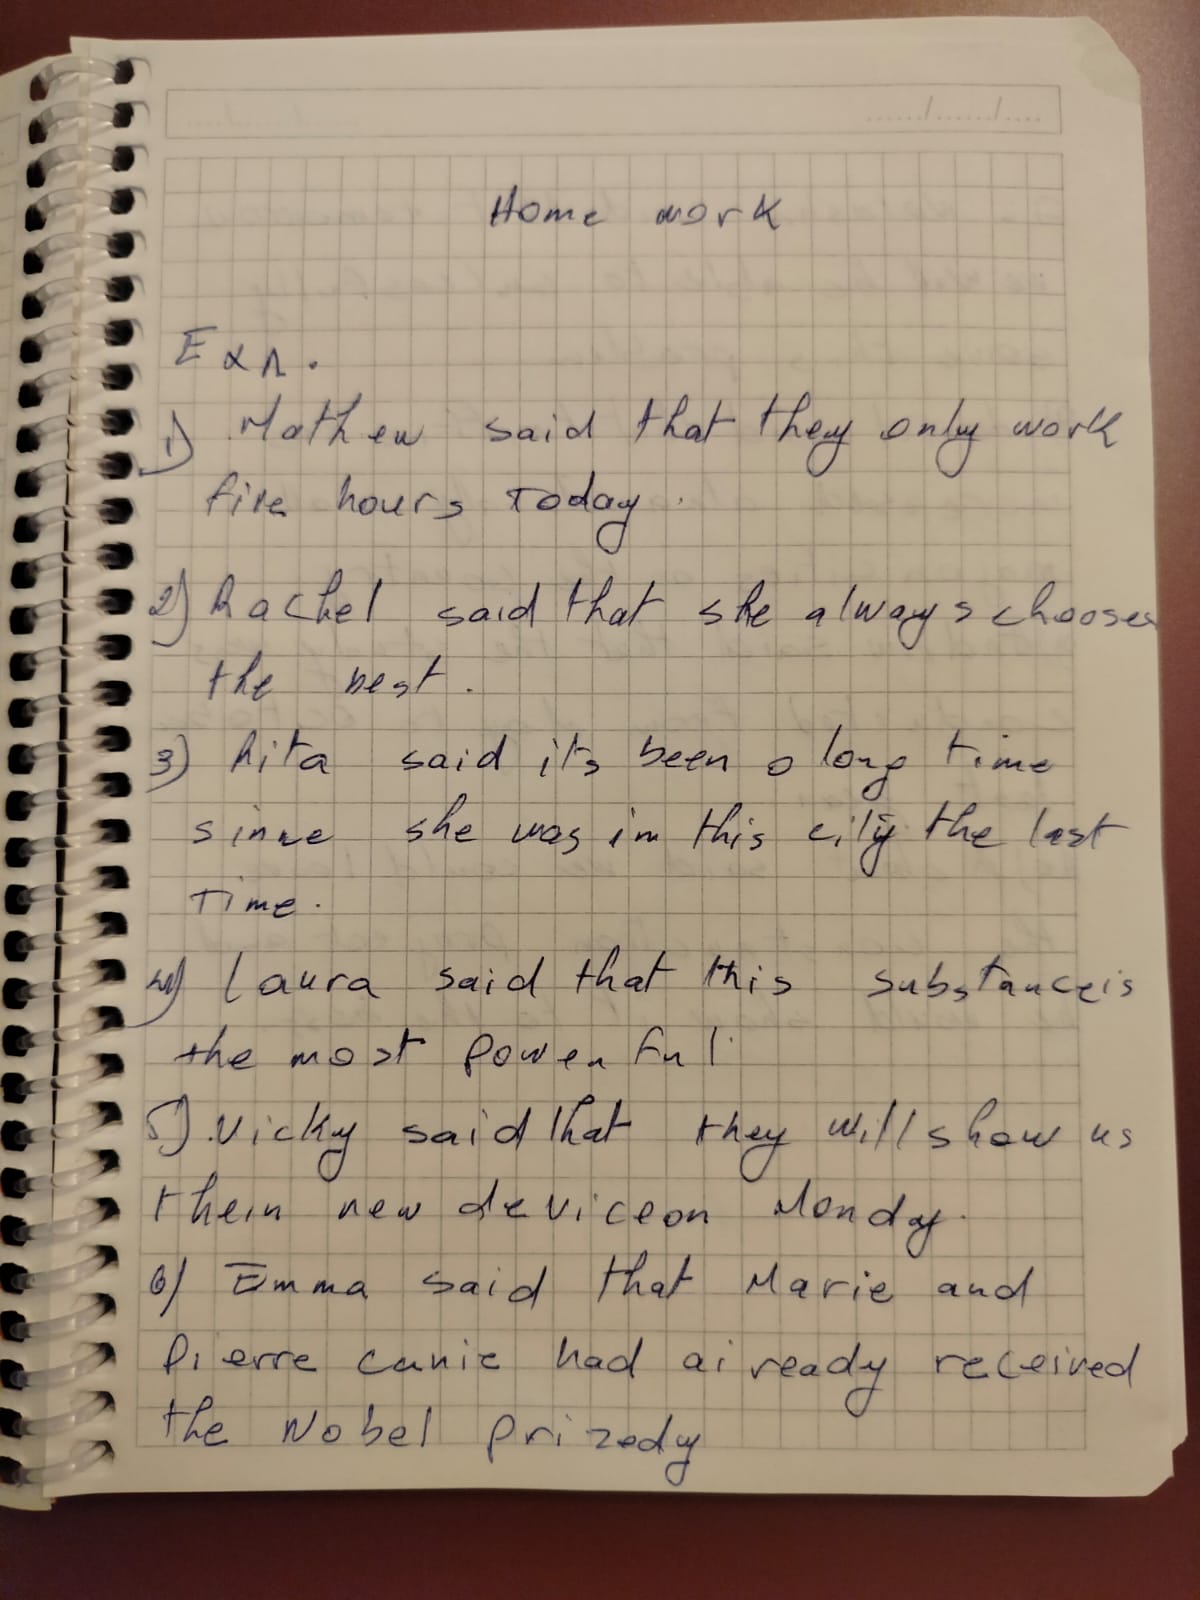 Home work
Ex 1.
1) Mathew said that they only work
five hours today.
2) Rachel said that she always chooses
the best.
3) Rita said it's been a long time
since she was in this city the last
time.
4) Laura said that this substance is
the most powerful.
5) Vicky said that they will show us
their new device on Monday.
6) Emma said that Marie and
Pierre curie had already received
the Nobel